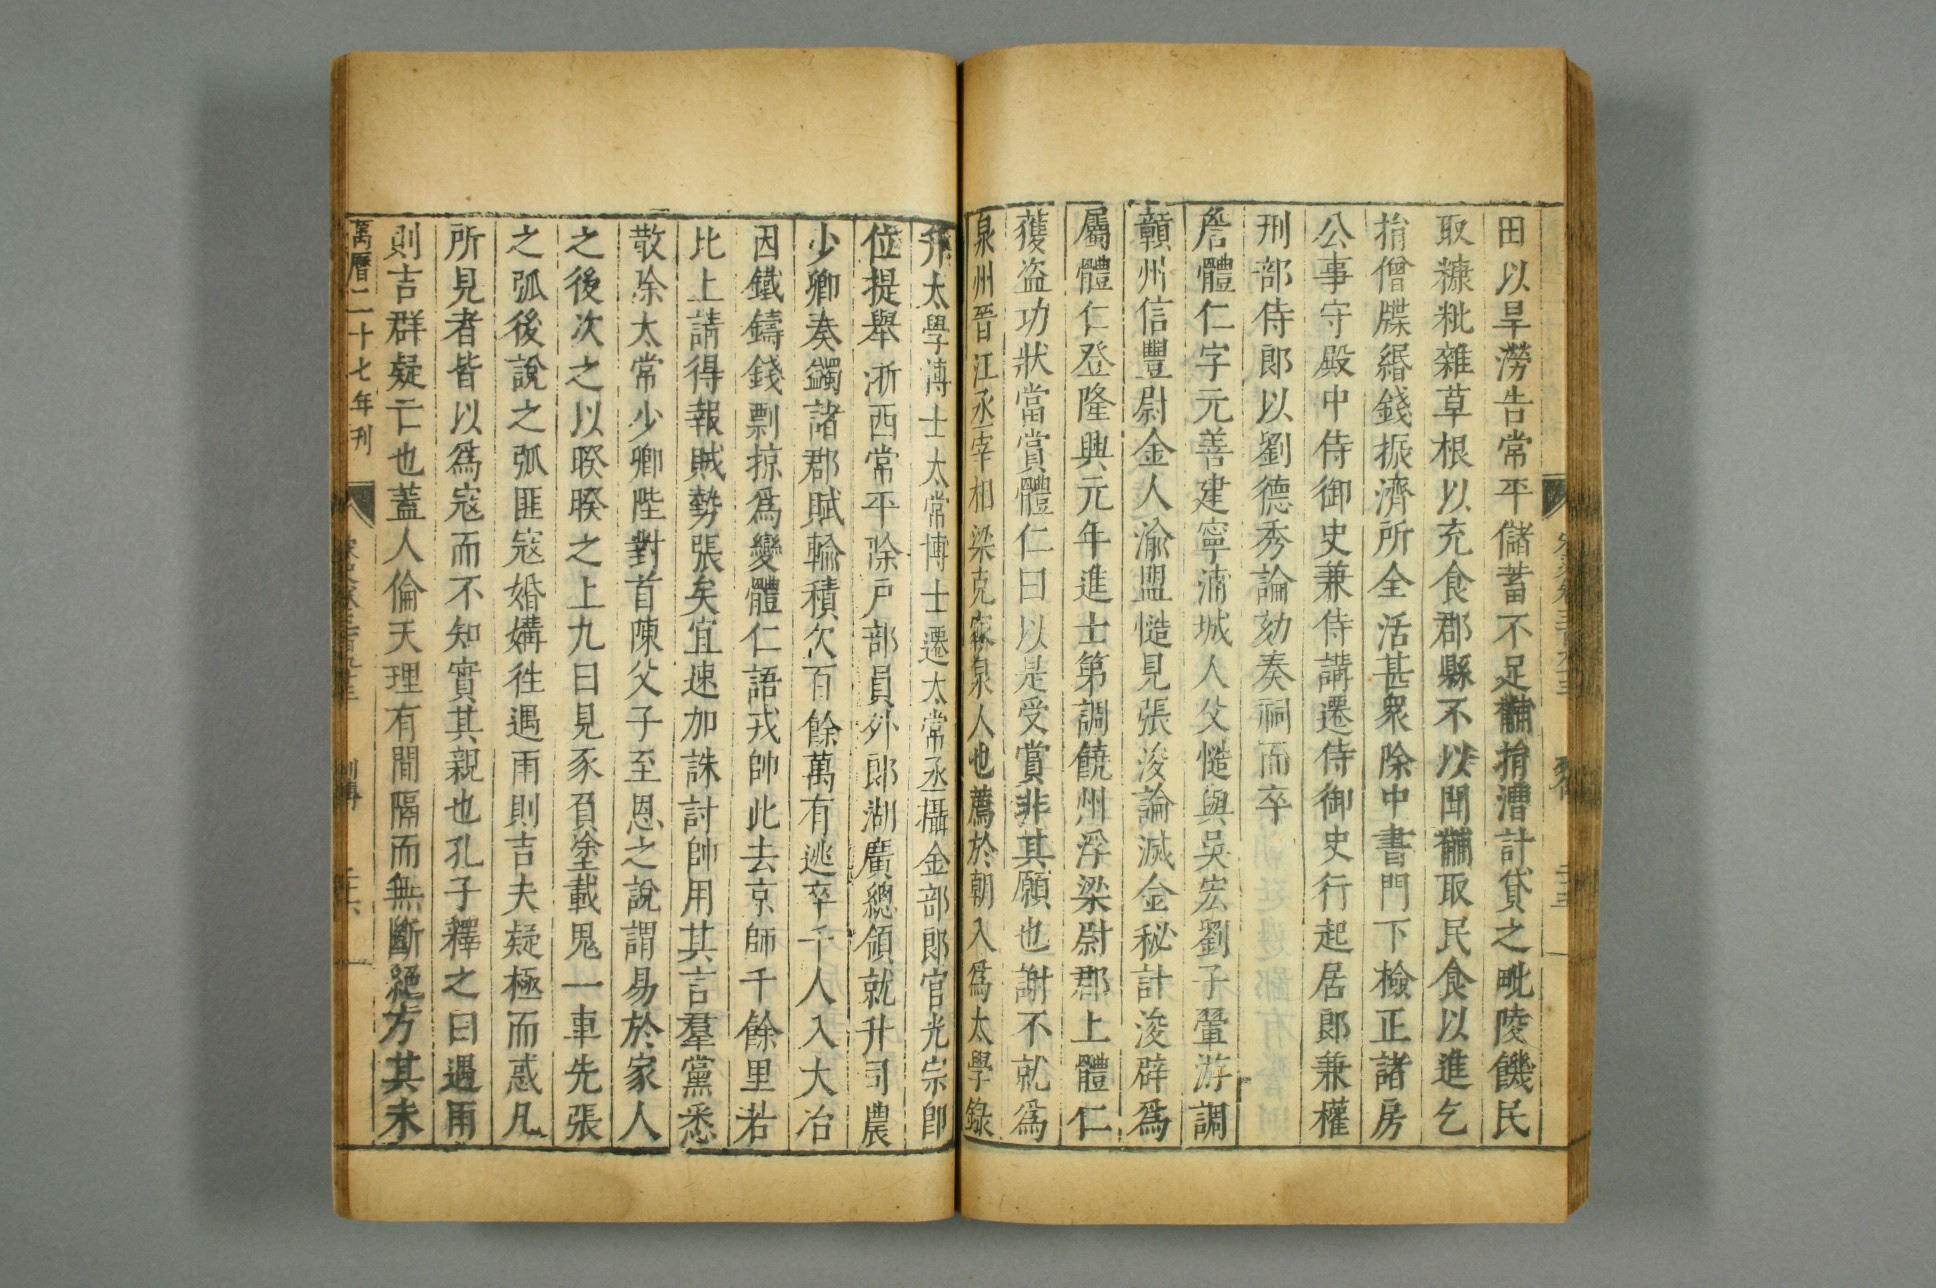 田以旱澇告常平儲蓄不足䌷捐漕計貸之毗陵饑民
取糠粃雜草根以充食郡縣不以聞䌷取民食以進乞
捐僧牒緡錢振濟所全活甚衆除中書門下檢正諸房
公事守殿中侍御史兼侍講遷侍御史行起居郎兼權
刑部侍郎以劉德秀論劾奏祠而卒
詹體仁字元善建寧浦城人父慥與吳宏劉子翬游調
贛州信豐尉金人渝盟慥見張浚論滅金秘計浚辟爲
屬體仁登隆興元年進士第調饒州浮梁尉郡上體仁
獲盜功狀當賞體仁曰以是受賞非其願也謝不就爲
泉州晉江丞宰相梁克家泉人也薦於朝入爲太學錄
升太學博士太常博士遷太常丞攝金部郎官光宗卽
位提舉浙西常平除戶部員外郎湖廣總領就升司農
少卿奏蠲諸郡賦輸積欠百餘萬有逃卒千人入大冶
因鐵鑄錢剽掠爲變體仁語戎帥此去京師千餘里若
比上請得報賊勢張矣宜速加誅討帥用其言羣黨悉
散除太常少卿陛對首陳父子至恩之說謂易於家人
之後次之以暌暌之上九曰見豕負塗載鬼一車先張
之弧後說之弧匪寇婚媾徃遇雨則吉夫疑極而惑凡
所見者皆以爲寇而不知實其親也孔子釋之曰遇雨
則吉群疑亡也蓋人倫天理有間隔而無斷絕方其未
萬曆二十七年刊
列傳
二十六